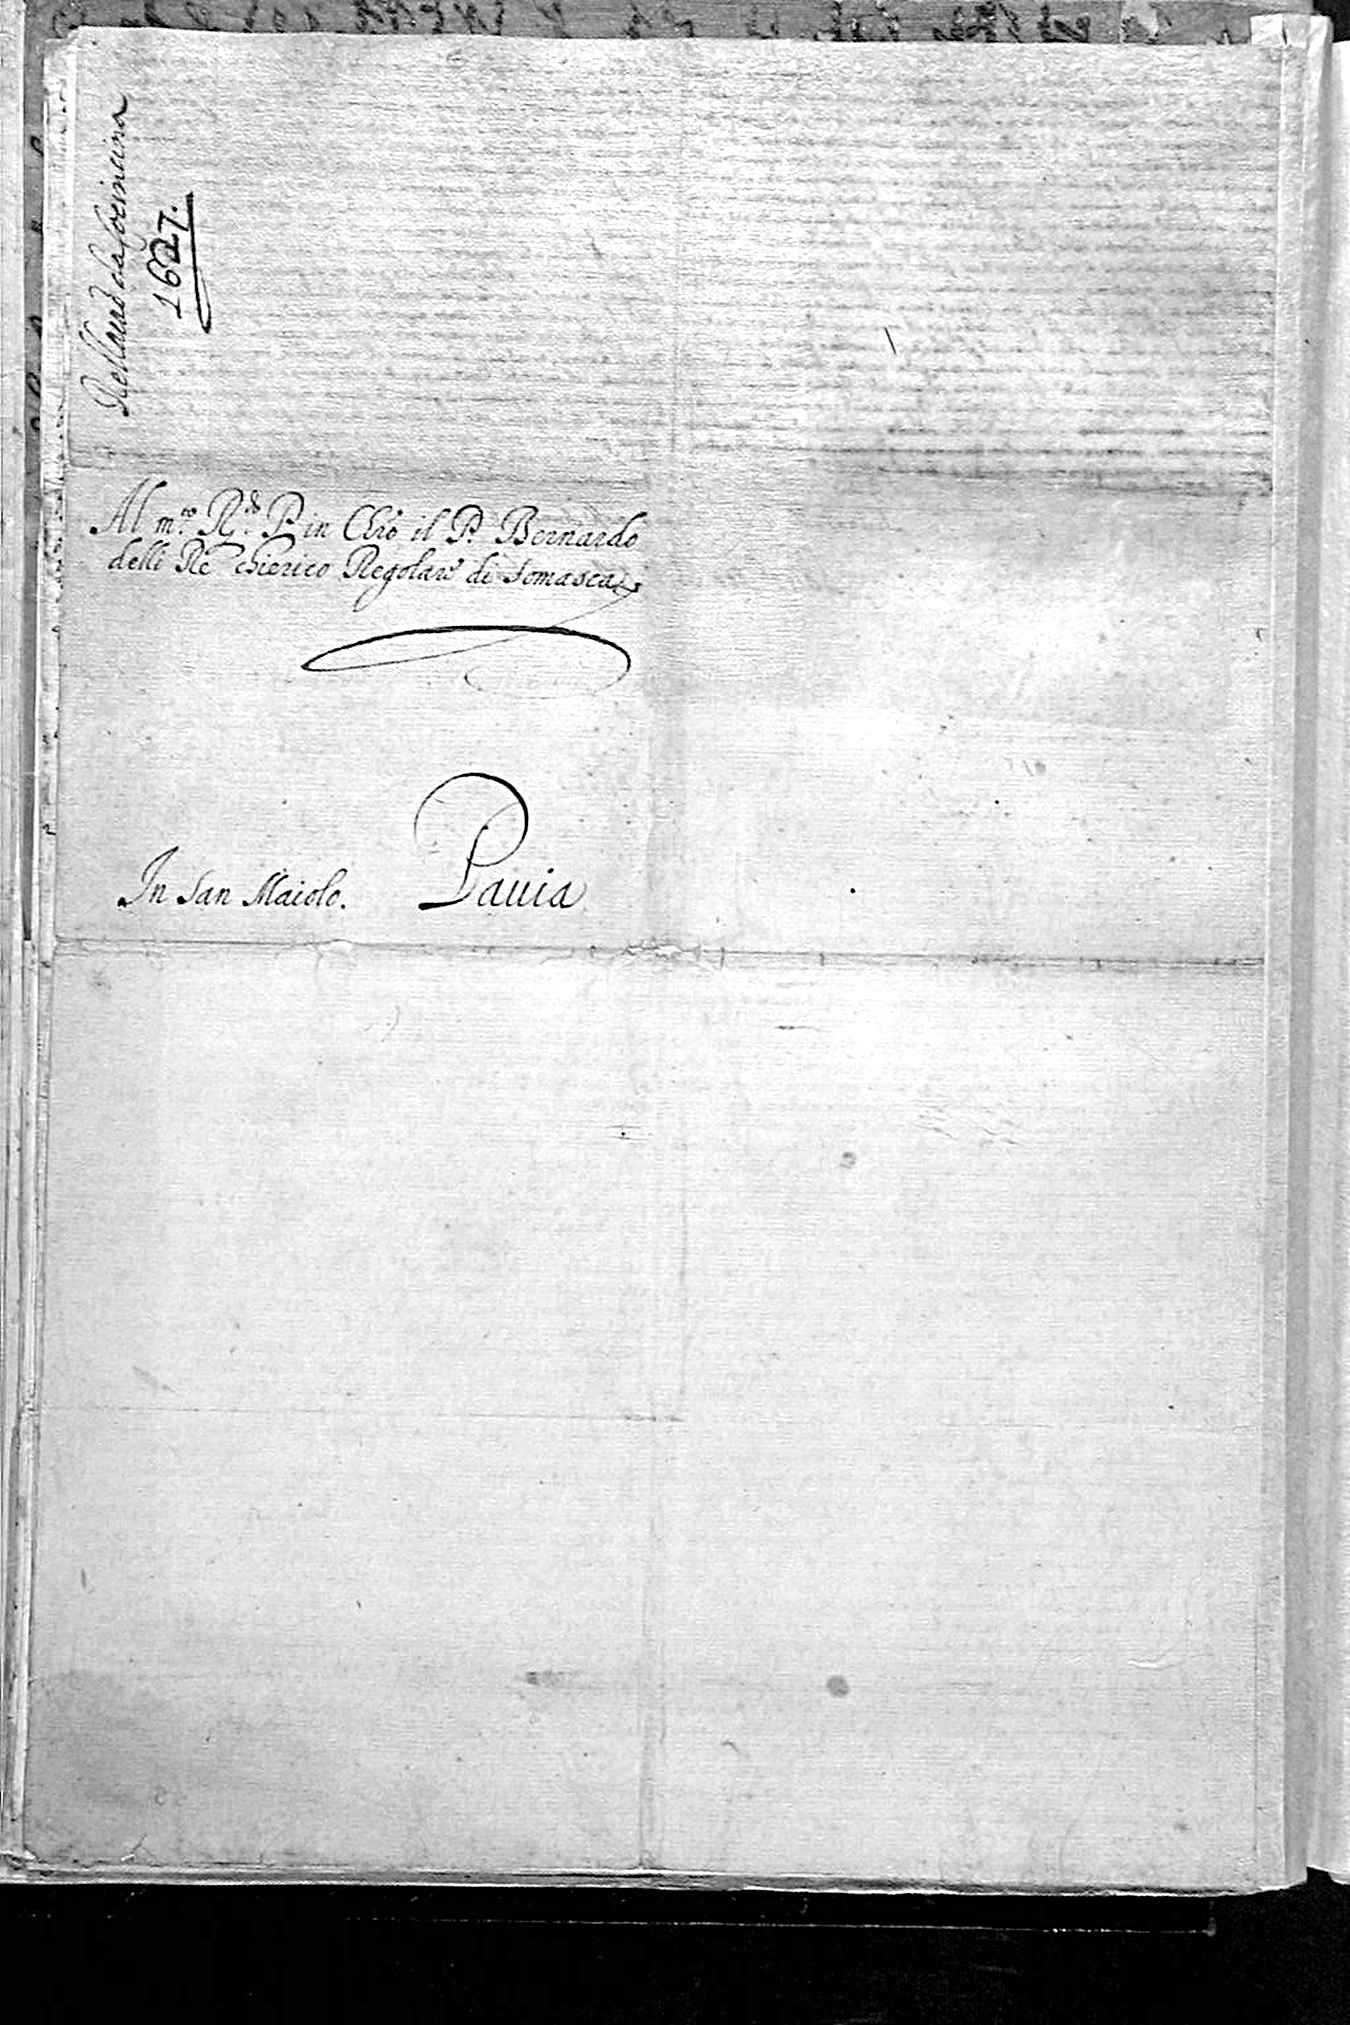 1627.
Al m.to R.do P. in Chro il P. Bernardo
delli Re chierico Regolare di Somasca
In San Maiolo. Pauia